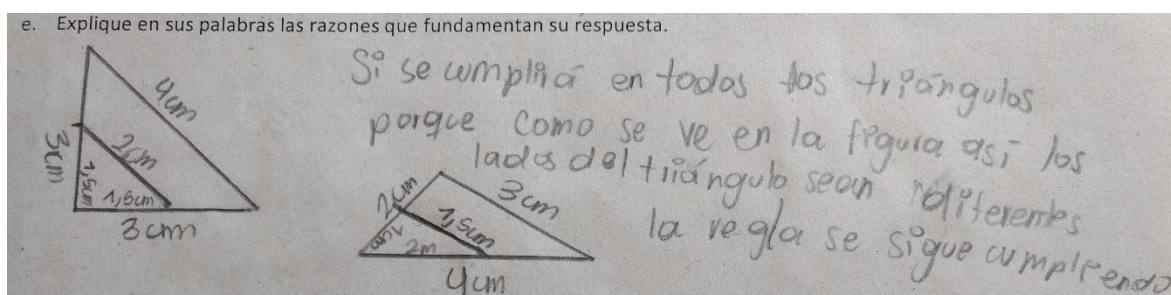 e. Explique en sus palabras las razones que fundamentan su respuesta.
Si se cumpliría en todos los triángulos
porque como se ve en la figura así los
lados del triángulo sean diferentes
la regla se sigue cumpliendo
4cm
3cm
2cm
1,5cm
1,5cm
3cm
2cm
3cm
1cm
1,5cm
2m
4cm